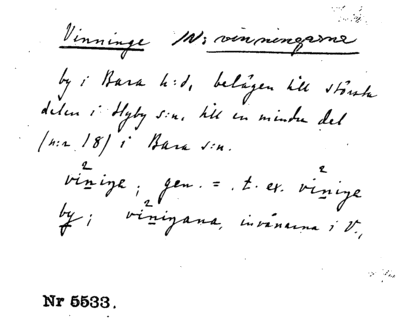 Vinninge /N: vinningarne
by i Bara h:d, belägen till största
delen i Hyby s:n, till en mindre del
(n:r 18) i Bara s:n.
viniye, gen. = t. ex. viniye
by; viniyana, invånarna i V.,
Nr 5533.